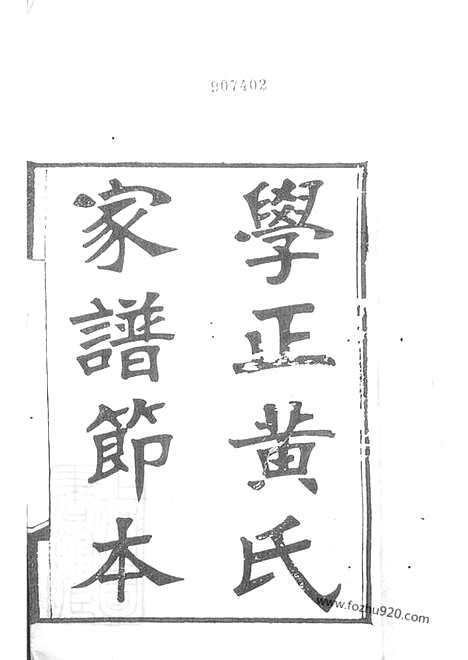 907402
學正黃氏
家譜節本
www.fozhu920.com